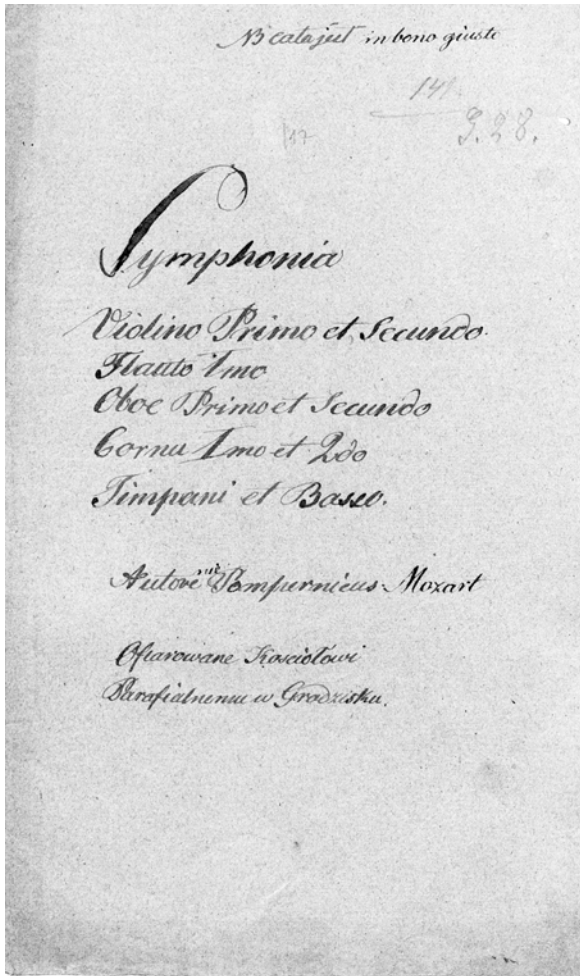 NB catajut in bono giusto
141.
9.28.
147
Symphonia
Violino Primo et Secundo.
Flauto Imo
Oboe Primo et Secundo
Cornu Imo et 2do
Timpani et Basso.
Autore Pompernicus Mozart
Ofiarowane Kosciołowi
Parafialnemu w Grodzisku.